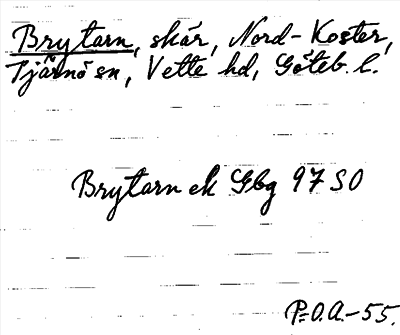 Brytarn, skär, Nord-Koster,
Tjärnö sn, Vette hd, Göteb. l.
Brytarn ek Gbg 97 SO
P:O.A.-55.